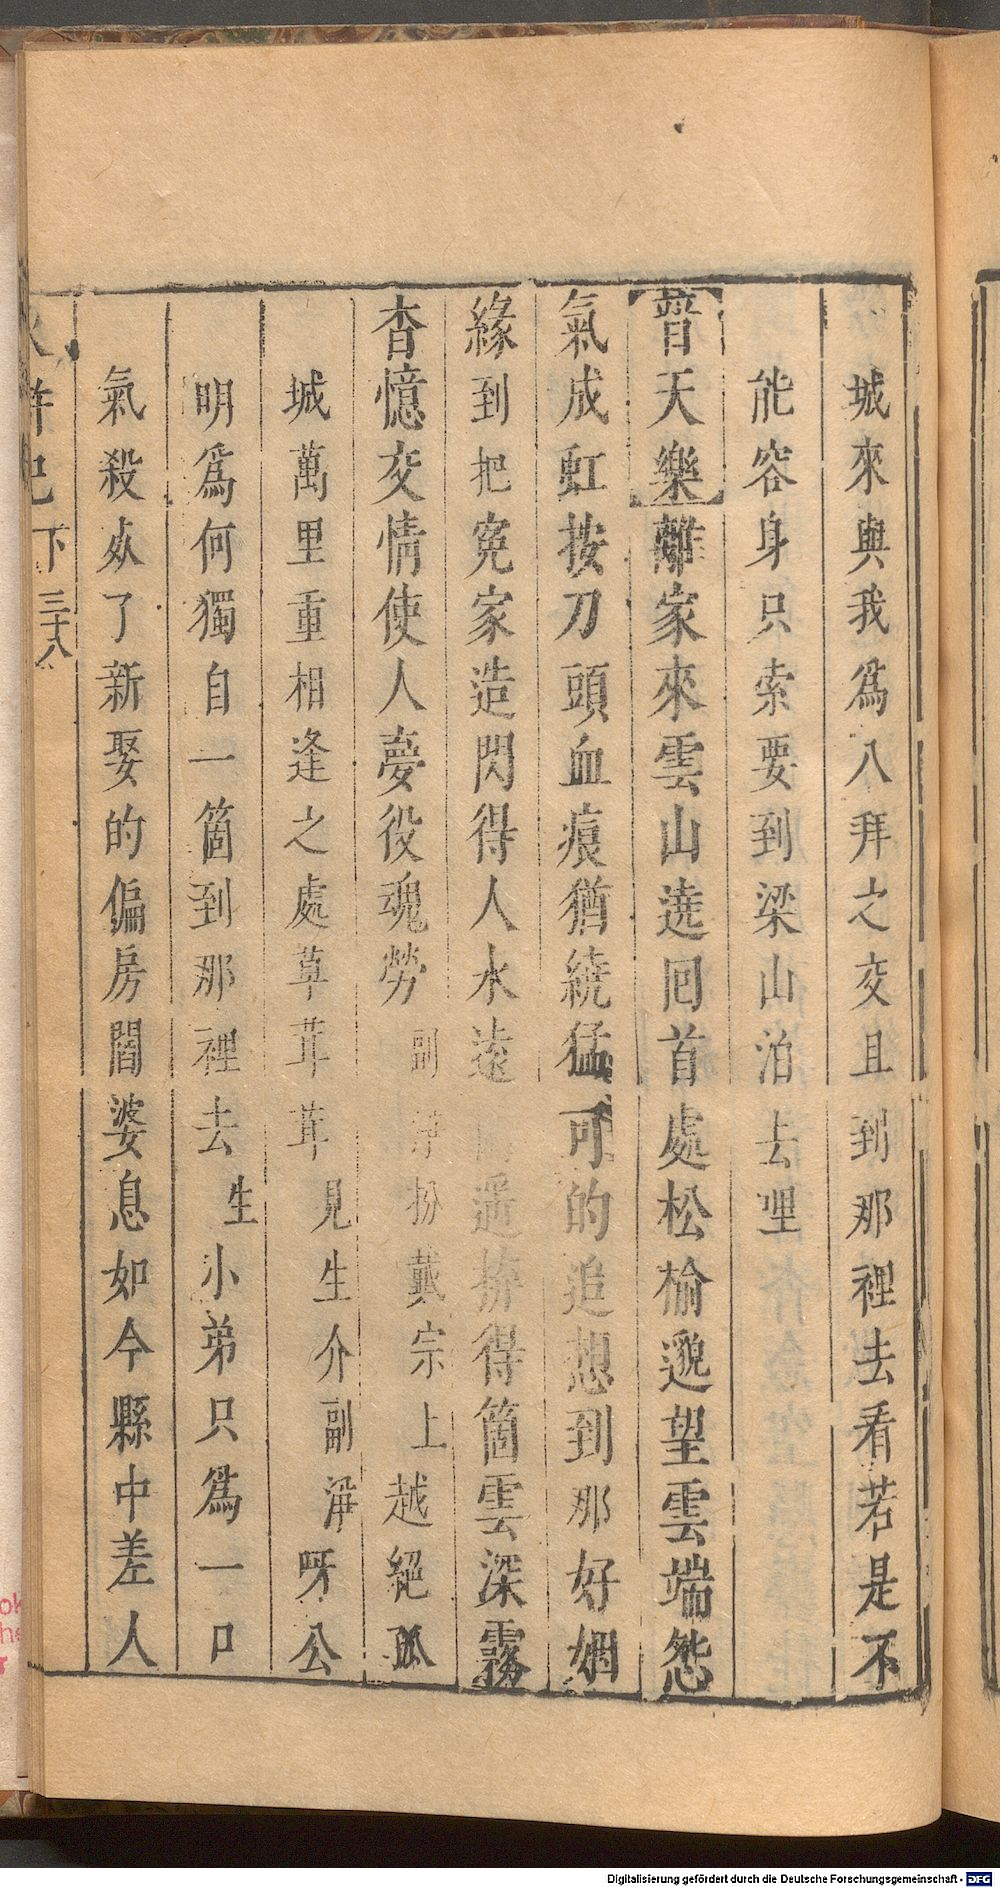 城來與我爲八拜之交且到那裡去看若是不
能容身只索要到梁山泊去哩
普天樂離家來雲山遶囘首處松楡邈望雲端怨
氣成虹按刀頭血痕猶繞猛可的追想到那好姻
緣到把寃家造閃得人水遠 遥拚得箇雲深霧
杳憶交情使人夢役魂勞 副淨扮戴宗上 越絕孤
城萬里重相逢之處草茸茸 見生介副淨 呀公
明爲何獨自一箇到那裡去 生 小弟只爲一口
氣殺死了新娶的偏房閻婆息如今縣中差人
水滸記 下 三十八
Digitalisierung gefördert durch die Deutsche Forschungsgemeinschaft - DFG